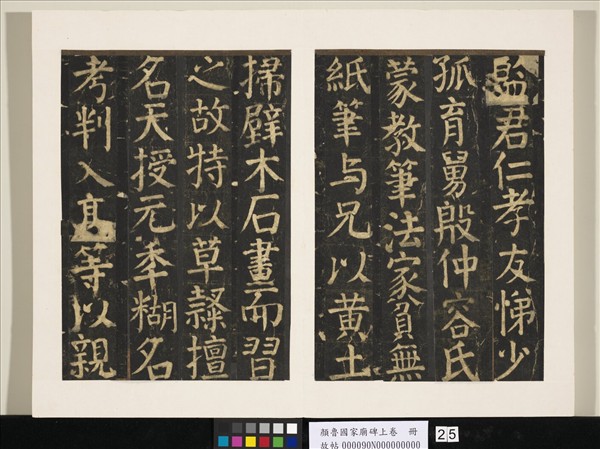 監君仁孝友悌少
孤育舅殷仲容氏
蒙教筆法家貧無
紙筆与兄以黃土
掃壁木石畫而習
之故特以草隸擅
名天授元年糊名
考判入高等以親
顏魯國家廟碑上卷 冊
故帖 000090N000000000
25